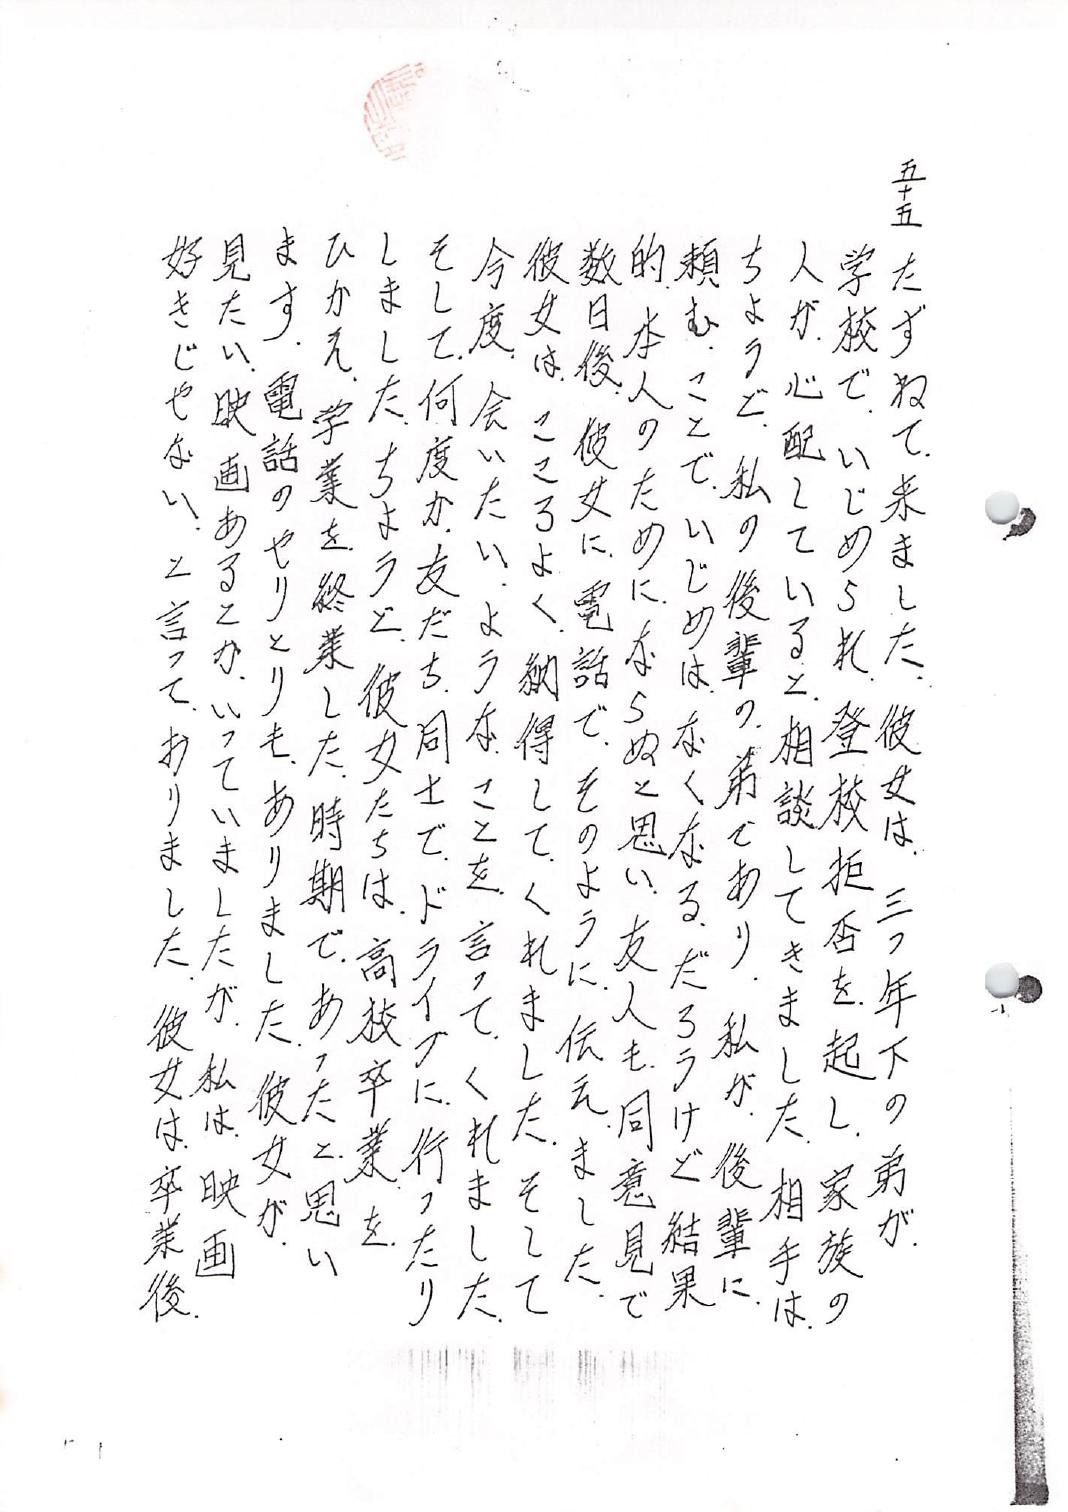 五十五
たずねて、来ました、彼女は、三つ年下の弟が、
学校で、いじめられ、登校拒否を、起し、家族の
人が、心配していると、相談してきました、相手は、
ちょうど、私の後輩の、弟であり、私が、後輩に、
頼む、ことで、いじめは、なくなる、だろうけど結果
的、本人のために、ならぬと思い、友人も、同意見で
数日後、彼女に、電話で、そのように、伝え、ました、
彼女は、こころよく、納得して、くれました、そして
今度、会いたい、ような、ことを、言って、くれました、
そして、何度か、友だち、同士で、ドライブに、行ったり
しました、ちょうど、彼女たちは、高校卒業、を、
ひかえ、学業を、終業した、時期で、あったと、思い
ます、電話のやりとりも、ありました、彼女が、
見たい、映画あるとか、いっていましたが、私は、映画
好きじゃない、と言って、おりました、彼女は、卒業後、